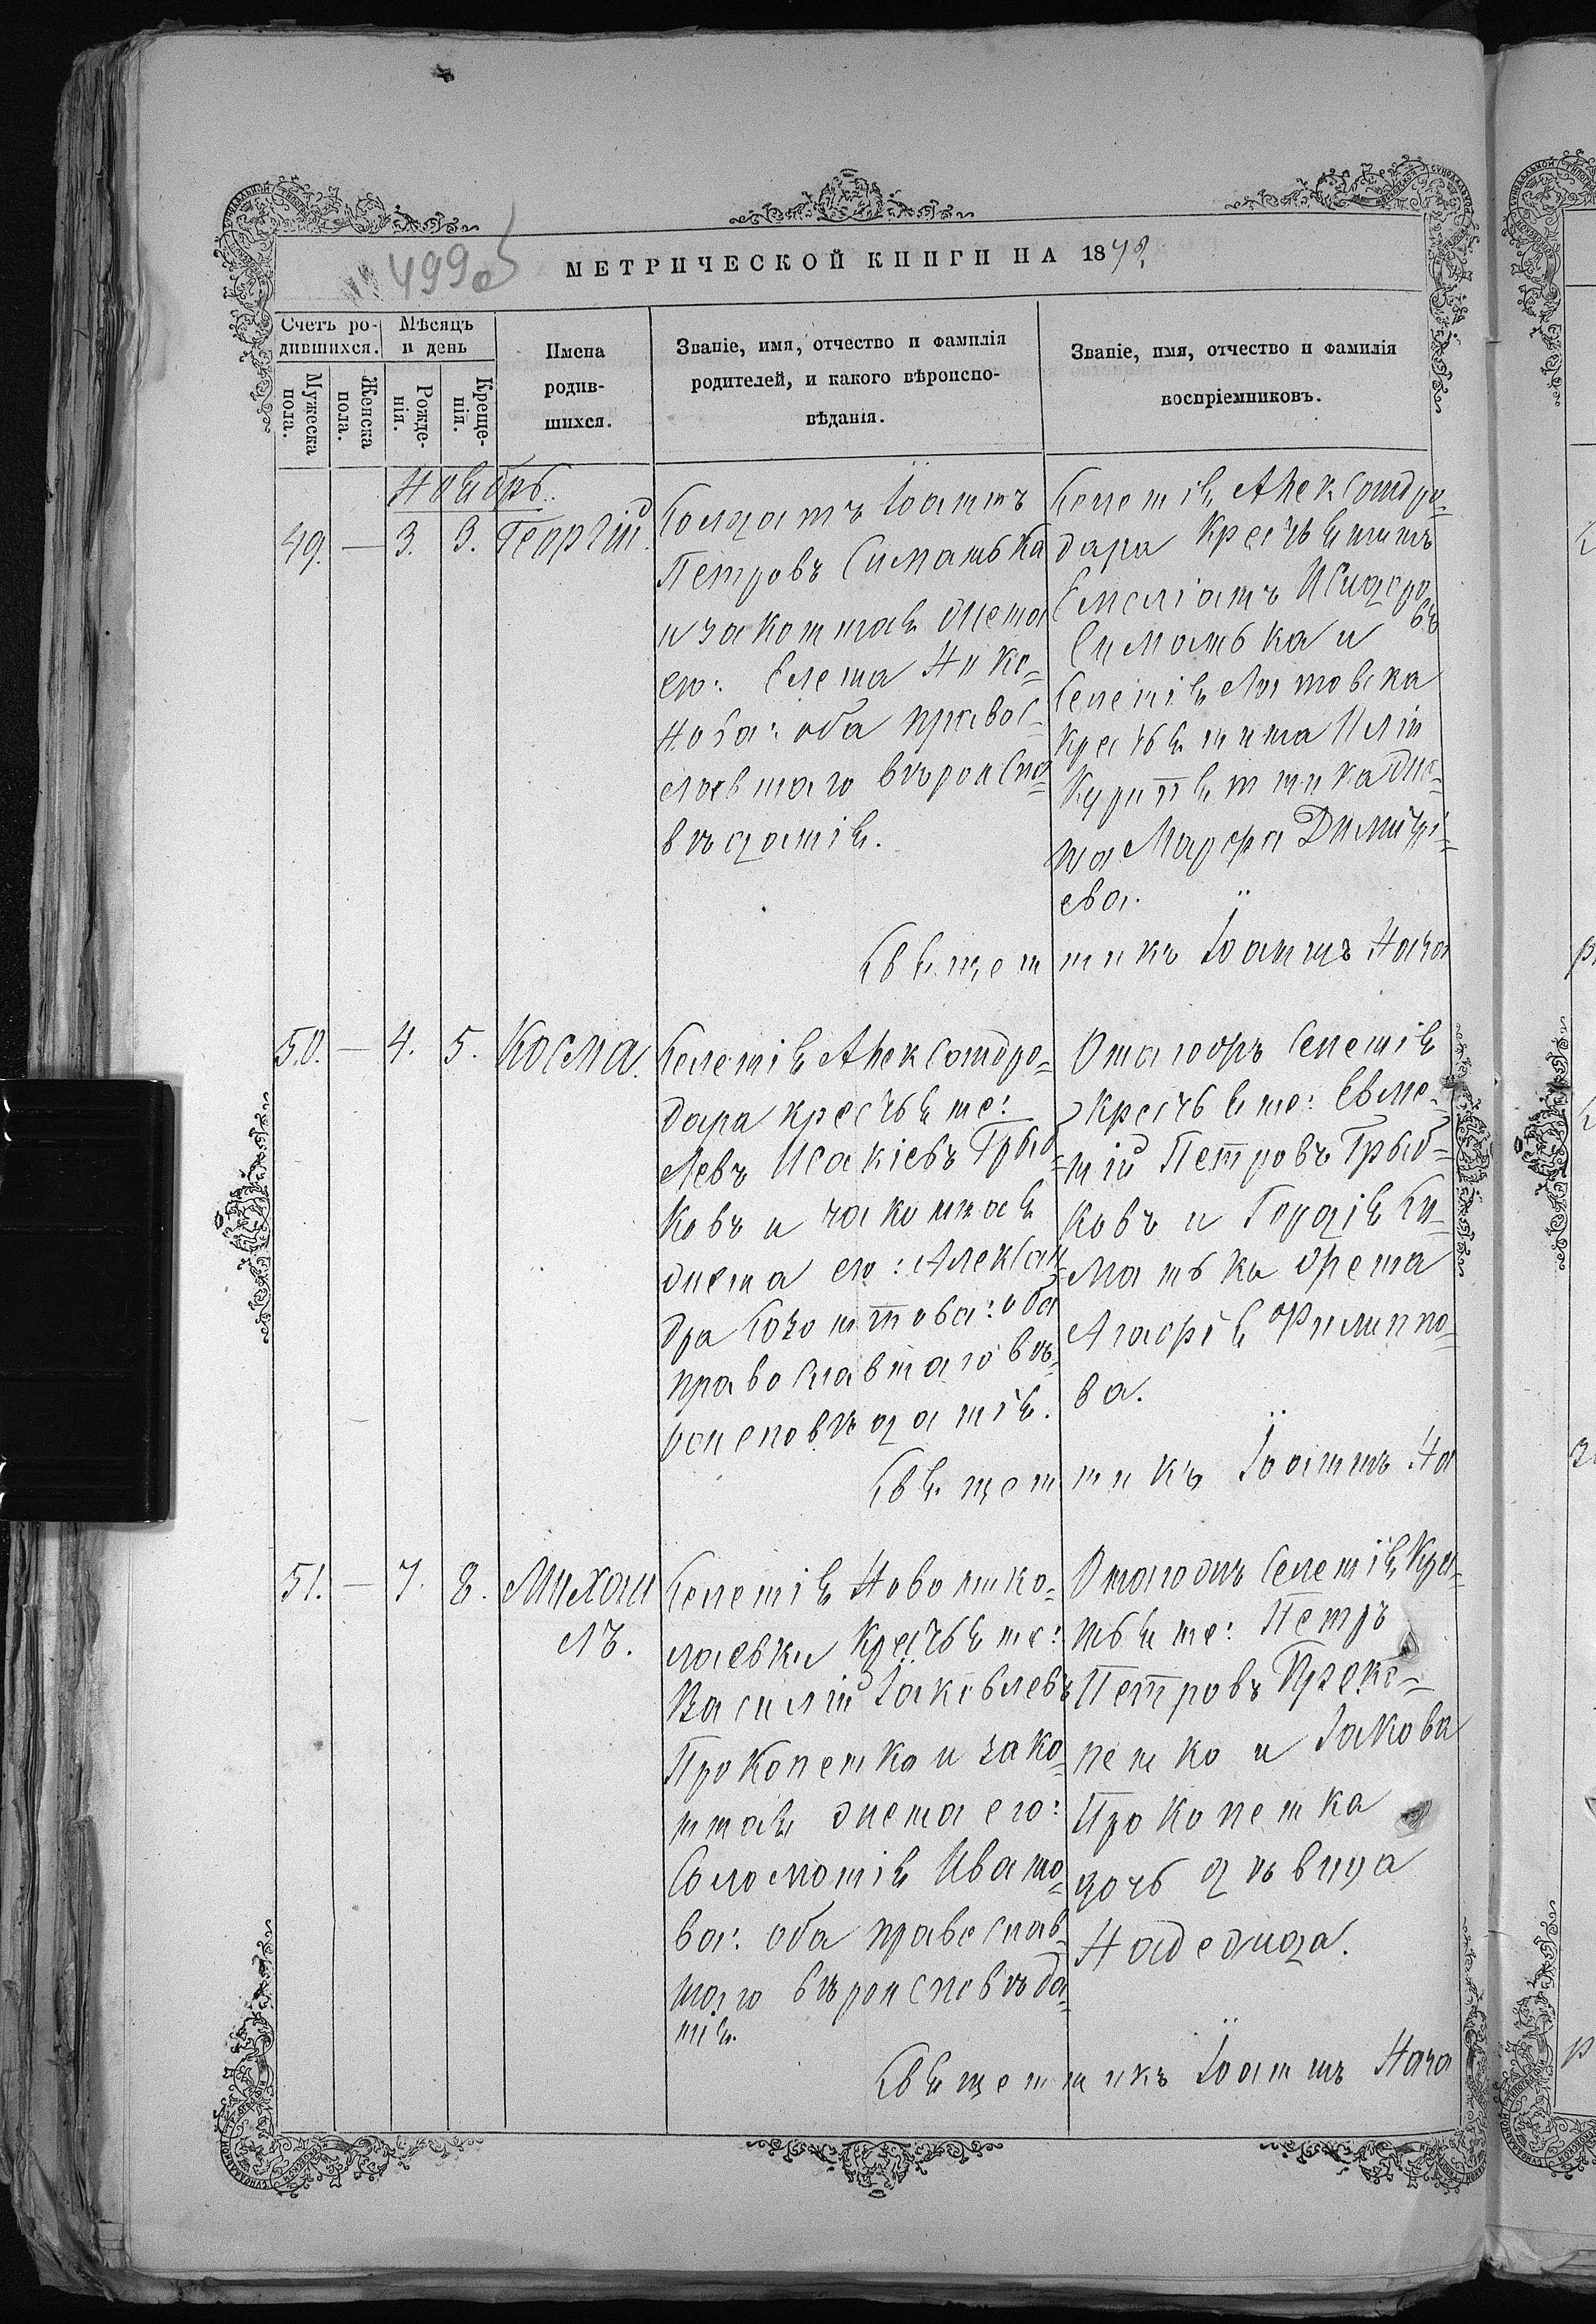 499об
МЕТРИЧЕСКОЙ КНИГИ НА 1878.
Счетъ ро-
дившихся.
Мужеска
пола.
Женска
пола.
Мѣсяцъ
и день
Рожде-
нія.
Креще-
нія.
Имена
родив-
шихся.
Званіе, имя, отчество и фамилія
родителей, и какого вѣроиспо-
вѣданія.
Званіе, имя, отчество и фамилія
воспріемниковъ.
Ноябрь.
49. — 3. 3. Георгій.
Солдатъ Іоаннъ
Петровъ Симанька
и законная жена
его: Елена
оба правос-
лавнаго вѣроиспо-
вѣданія.
Селенія Александро-
дара крестьянинъ
Емеліанъ Исидоровъ
Симанька и
Селенія
крестьянина Иліи
жe-
на Марфа Димитрі-
ева.
Священникъ Іоаннъ
50. — 4. 5. Косма.
Селенія Александро-
дара крестьяне:
Левъ Исакіевъ Грыб-
ковъ и законная
жена его: Алексан-
дра оба
православнаго вѣ-
роисповѣданія.
Онагожъ Селенія
крестьяне: Евме-
ній Петровъ Грыб-
ковъ и Гордія Си-
манька жена
Агафія Филиппо-
ва.
Священникъ Іоаннъ
51. — 7. 8. Михаи
лъ.
Селенія Новонико-
лаевки крестьяне:
Василій Іаковлевъ
Прокопенко и зако-
нная жена его:
Соломонія Ивано-
ва: оба православ-
наго вѣроисповѣда-
нія.
Онагожъ Селенія крес-
тьяне: Петръ
Петровъ Проко-
пенко и Іакова
Прокопенка
дочь дѣвица
Надежда.
Священникъ Іоаннъ